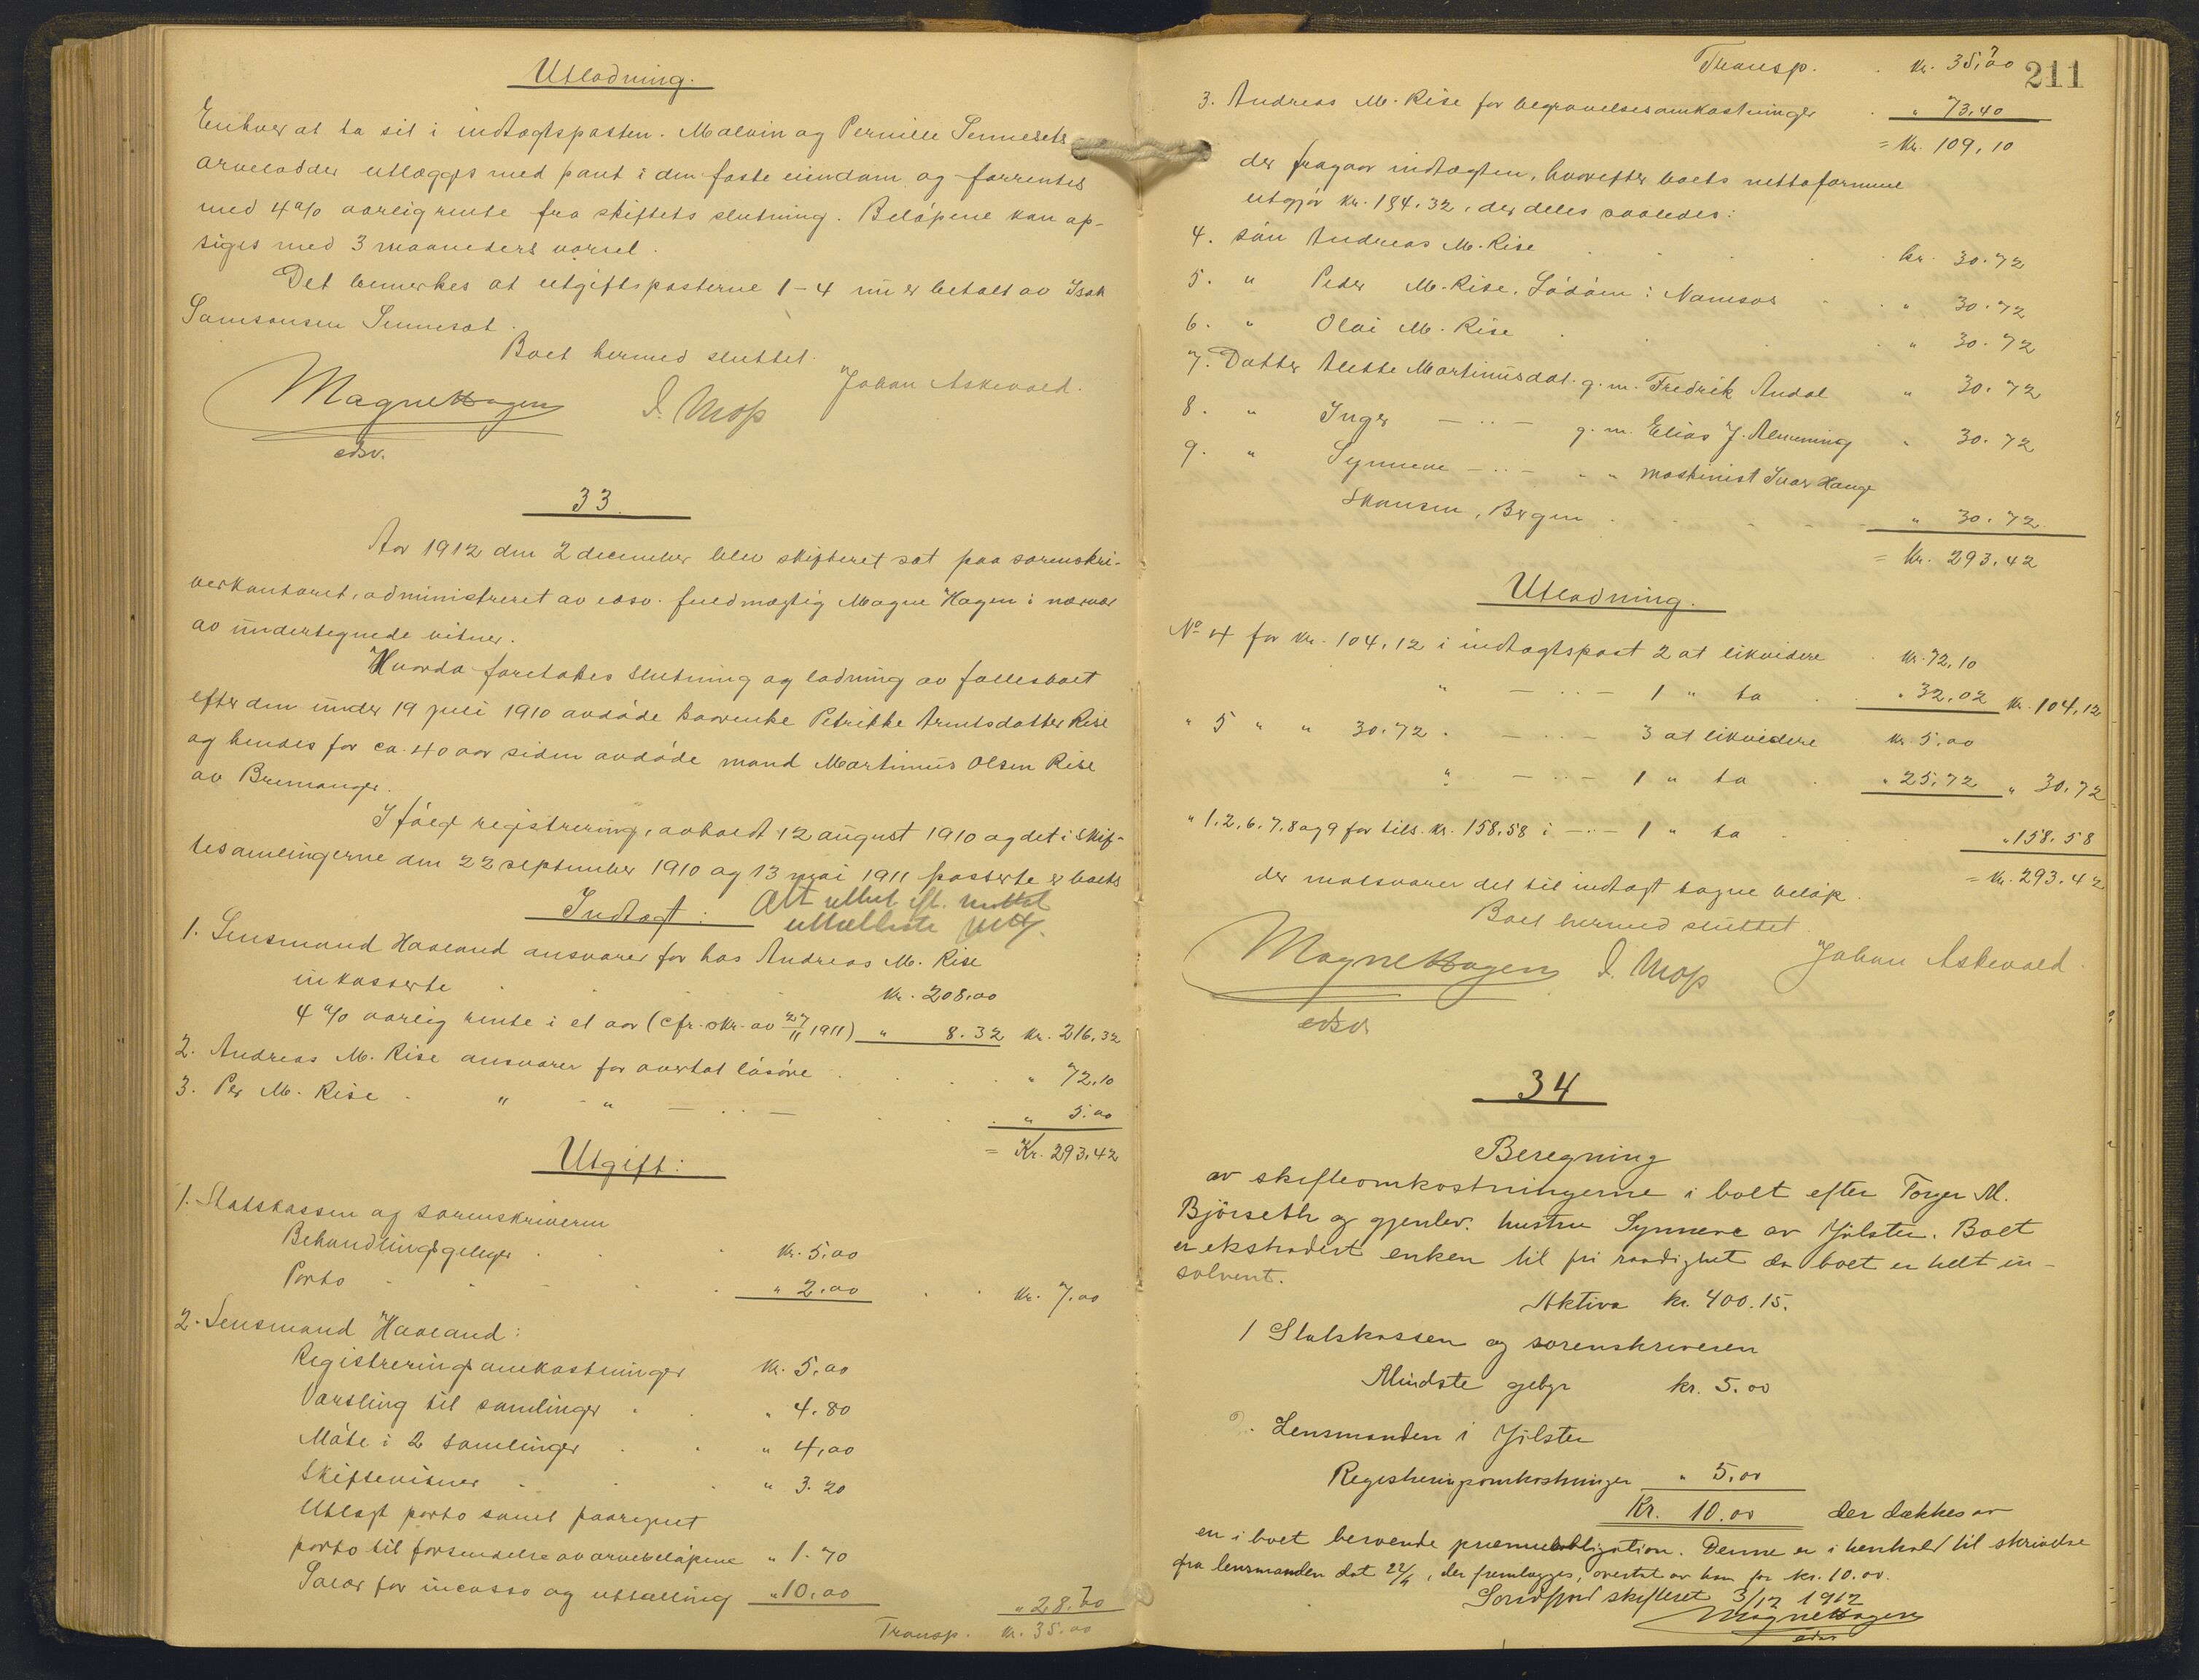 Utlodning.
Enhver at ta sit i indtægtsposten. Malvin og Pernille Sennesets
arvelodder utlægges med pant i den faste eiendom og forrentes
med 4% aarlig rente fra skiftets slutning. Beløpene kan op-
siges med 3 maaneders varsel.
Det bemerkes at utgiftsposterne 1-4 nu er betalt av Isak
Samsonsen Senneset.
Boet hermed sluttet.
Magne Hagen
edsv.
J. Mop
Johan Askevold.
33.
Aar 1912 den 2 december blev skifteret sat paa sorenskri-
verkontoret, administreret av edsv. fuldmægtig Magne Hagen i nærvær
av undertegnede vitner.
Hvorda foretokes slutning og lodning av fællesboet
efter den under 19 juli 1910 avdøde kaarenke Petrikke Arentsdatter Rise
og hendes for ca. 40 aar siden avdøde mand Martinus Olsen Rise
av Bremanger.
Ifølge registrering, avholdt 12 august 1910 og det i skif-
tesamlingerne den 22 september 1910 og 13 mai 1911 passerte er boets
Indtægt:
1. Lensmand Haaland ansvarer for hos Andreas M. Rise
inkasserte . . . kr. 208,00
4% aarlig rente i et aar (cfr. skr. av 27/11 1911) " 8.32 kr. 216,32
2. Andreas M. Rise ansvarer for overtat løsøre . . . " 72,10
3. Per M. Rise . " - " - . . - . . . " 5.00
= Kr. 293,42
Utgift:
1. Statskassen og sorenskriveren
Behandlingsgebyr . . . kr. 5,00
Porto . . . " 2,00 . . kr. 7,00
2. Lensmand Haaland:
Registreringsomkostninger kr. 5,00
Varsling til samlinger . . " 4.80
Møte i 2 samlinger . . " 4,00
Skiftevitner . . . " 3.20
Utlagt porto samt paaregnet
porto til forsendelse av arvebeløpene " 1.70
Salær for incasso og uttælling " 10,00 " 28.70
Transp. kr. 35.00
211
Transp. . kr. 35,00
3. Andreas M. Rise for begravelsesomkostninger . " 73,40
= Kr. 109,10
der fragaar indtægten, hvorefter boets nettoformue
utgjør kr. 184.32, der deles saaledes:
4. søn Andreas M. Rise . . . . kr. 30.72
5. " Peder M. Rise, Lødøen i Namsos . . " 30.72
6. " Olai M. Rise . . . . " 30.72
7. Datter Alette Martinusdat. g. m. Fredrik Andal " 30.72
8. " Inger - .. - g. m. Elias J. Almenning " 30.72
9. " Synneve - .. - " " maskinist Ivar Hauge
Skansen, Bergen . . . . . " 30.72
= Kr. 293.42
Utlodning.
No 4 for kr. 104,12 i indtægtspost 2 at likvidere . kr. 72,10
" - .. - 1 " ta . . " 32,02 kr. 104,12
" 5 " " 30.72 . - .. - 3 at likvidere kr. 5,00
" - .. - 1 " ta . " 25,72 " 30,72
" 1. 2. 6. 7. 8 og 9 for tils. kr. 158,58 i - .. - 1 " ta . . " 158.58
= kr. 293.42
der motsvarer det til indtægt tagne beløp.
Boet hermed sluttet.
Magne Hagen
edsv
J. Mop
Johan Askevold.
34
Beregning
av skifteomkostningerne i boet efter Torger M.
Bjørseth og gjenlev. hustru Synneve av Jølster. Boet
er ekstradert enken til fri raadighet da boet er helt in-
solvent.
Aktiva kr. 400.15.
1 Statskassen og sorenskriveren
Mindste gebyr kr. 5.00
2. Lensmanden i Jølster
Registreringsomkostninger " 5,00
Kr. 10.00 der dækkes av
en i boet beroende præmieobligation. Denne er i henhold til skrivelse
fra lensmanden dat 22/4, der fremlægges, overtat av ham for kr. 10.00.
Søndfjord skifteret 3/12 1912
Magne Hagen
edsv